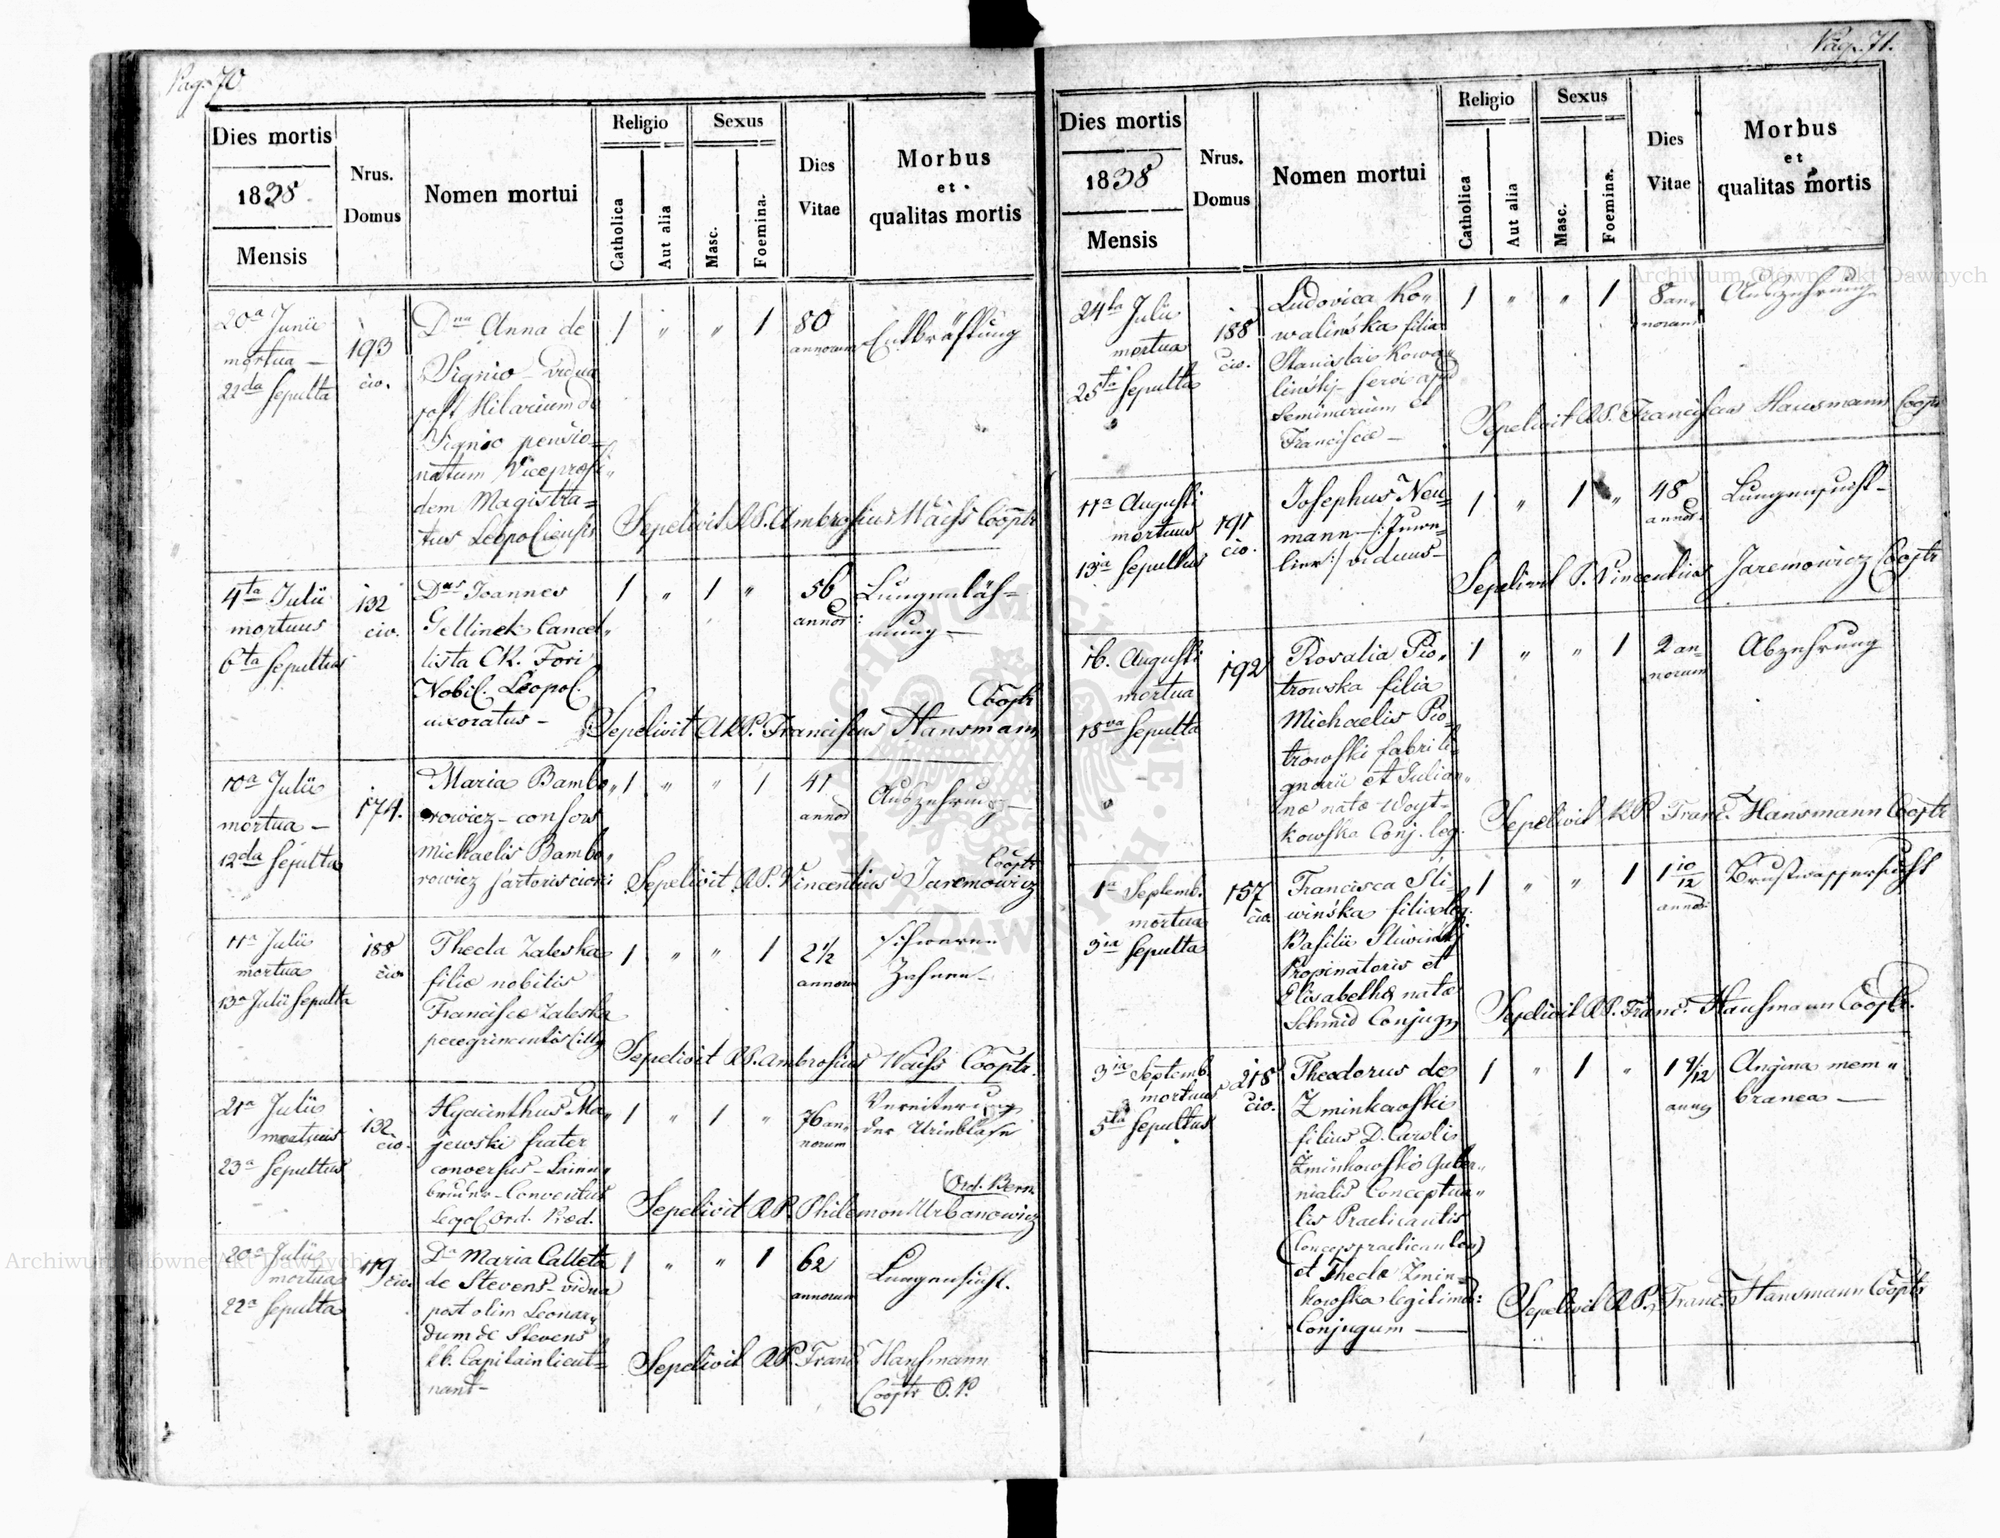 Pag. 70
Dies mortis
1838
Mensis
Nrus.
Domus
Nomen mortui
Religio
Catholica
Aut alia
Sexus
Masc.
Foemina.
Dies
Vitae
Morbus
et
qualitas mortis
20a Junii
mortua —
22da Sepulta
193
civ.
Dna Anna de
Signio - vidua
post Hilarium de
Signio pensio=
natum Viceprasi=
dem Magistra=
tus Leopoliensis
1 " " 1
80
annorum
Entkräftung
Sepelivit R.P. Ambrosius Waiss Cooptr
4ta Julii
mortuus
6ta Sepultus
132
civ.
Dnus Joannes
Gellinek Cancel"
lista CR. Fori
Nobil. Leopol.
uxoratus -
1 " 1 "
56
annor:
Lungenläh=
mung —
Cooptr
Sepelivit A.R.P. Franciscus Hansmann
10a Julii
mortua —
12da Sepulta
174.
Maria Bambo"
rowicz - consors
Michaelis Bambo"
rowicz sartoris civis
1 " " 1
41
annor
Auszehrung —
Cooptr
Sepelivit R.P. Vincentius Jaremowicz
11a Julii
mortua
13a Julii Sepulta
188
civ.
Thecla Zaleska
filia nobilis
Francisca Zaleska
1 " " 1
2 1/2
annorum
schweren
Zahnen -
Sepelivit R.P. Ambrosius Waiss Cooptr.
21a Julii
mortuus
23a Sepultus
132
civ.
Hyacinthus Ma"
jewski frater
conversus - Laien"
bruder - Conventus
Leopol. Ord. Praed.
1 " 1 "
76 an=
norum
Vereiterung
der Urinblase
Ord. Bern.
Sepelivit R.P. Philemon Urbanowicz
20a Julii
mortua
22a Sepulta
119
civ.
Da Maria Calleta
de Stevens - vidua
post olim Leonar"
dum de Stevens
kk. Capitainlieut=
nant -
1 " " 1
62
annorum
Lungensucht.
Sepelivit R.P. Franc. Hansmann
Cooptr O.P.
Pag. 71.
Dies mortis
1838
Mensis
Nrus.
Domus
Nomen mortui
Religio
Catholica
Aut alia
Sexus
Masc.
Foemina.
Dies
Vitae
Morbus
et
qualitas mortis
24ta Julii
mortua
25ta Sepulta
188
civ.
Ludovica Ko"
walińska filia
Stanislai Kowa"
lińskj - servi apud
Seminarium et
Francisca -
1 " " 1
8 an=
norum
Auszehrung
Sepelivit R.P. Franciscus Hansmann Cooptr
11a Augusti
mortuus
13a Sepultus
191
civ.
Josephus Neu=
mann - /: Juwe=
lier :/ viduus -
1 " 1 "
48
annor:
Lungensucht -
Sepelivit P. Vincentius Jaremowicz Cooptr
16. Augusti
mortua
18va Sepulta
192
Rosalia Pio"
trowska filia
Michaelis Pio=
trowski fabri li=
gnarii et Julian"
na nata Woyt=
kowska Conj. leg.
1 " " 1
2 an=
norum
Abzehrung
Sepelivit R.P. Franc. Hansmann Cooptr
1a Septemb.
mortua
3ia Sepulta
157
civ.
Francisca Sli=
wińska filia leg.
Basilii Sliwińskj
Propinatoris et
Elisabetha nata
Schmid Conjugum
1 " " 1
1 10/12
annor.
Brustwassersucht
Sepelivit R.P. Franc. Hansmann Cooptr.
3ia Septemb.
mortuus
5ta Sepultus
218
civ.
Theodorus de
Zminkowski
filius D. Caroli
Zminkowski Guber"
nialis Conceptua"
lis Practicantis
(Conceptspracticanten)
et Thecla Zmin=
kowska legitimor:
Conjugum —
1 " 1 "
1 9/12
Angina mem"
branea —
Sepelivit R.P. Franc. Hansmann Cooptr
Archiwum Główne Akt Dawnych
Archiwum Główne Akt Dawnych
ARCHIWUM GŁÓWNE AKT DAWNYCH